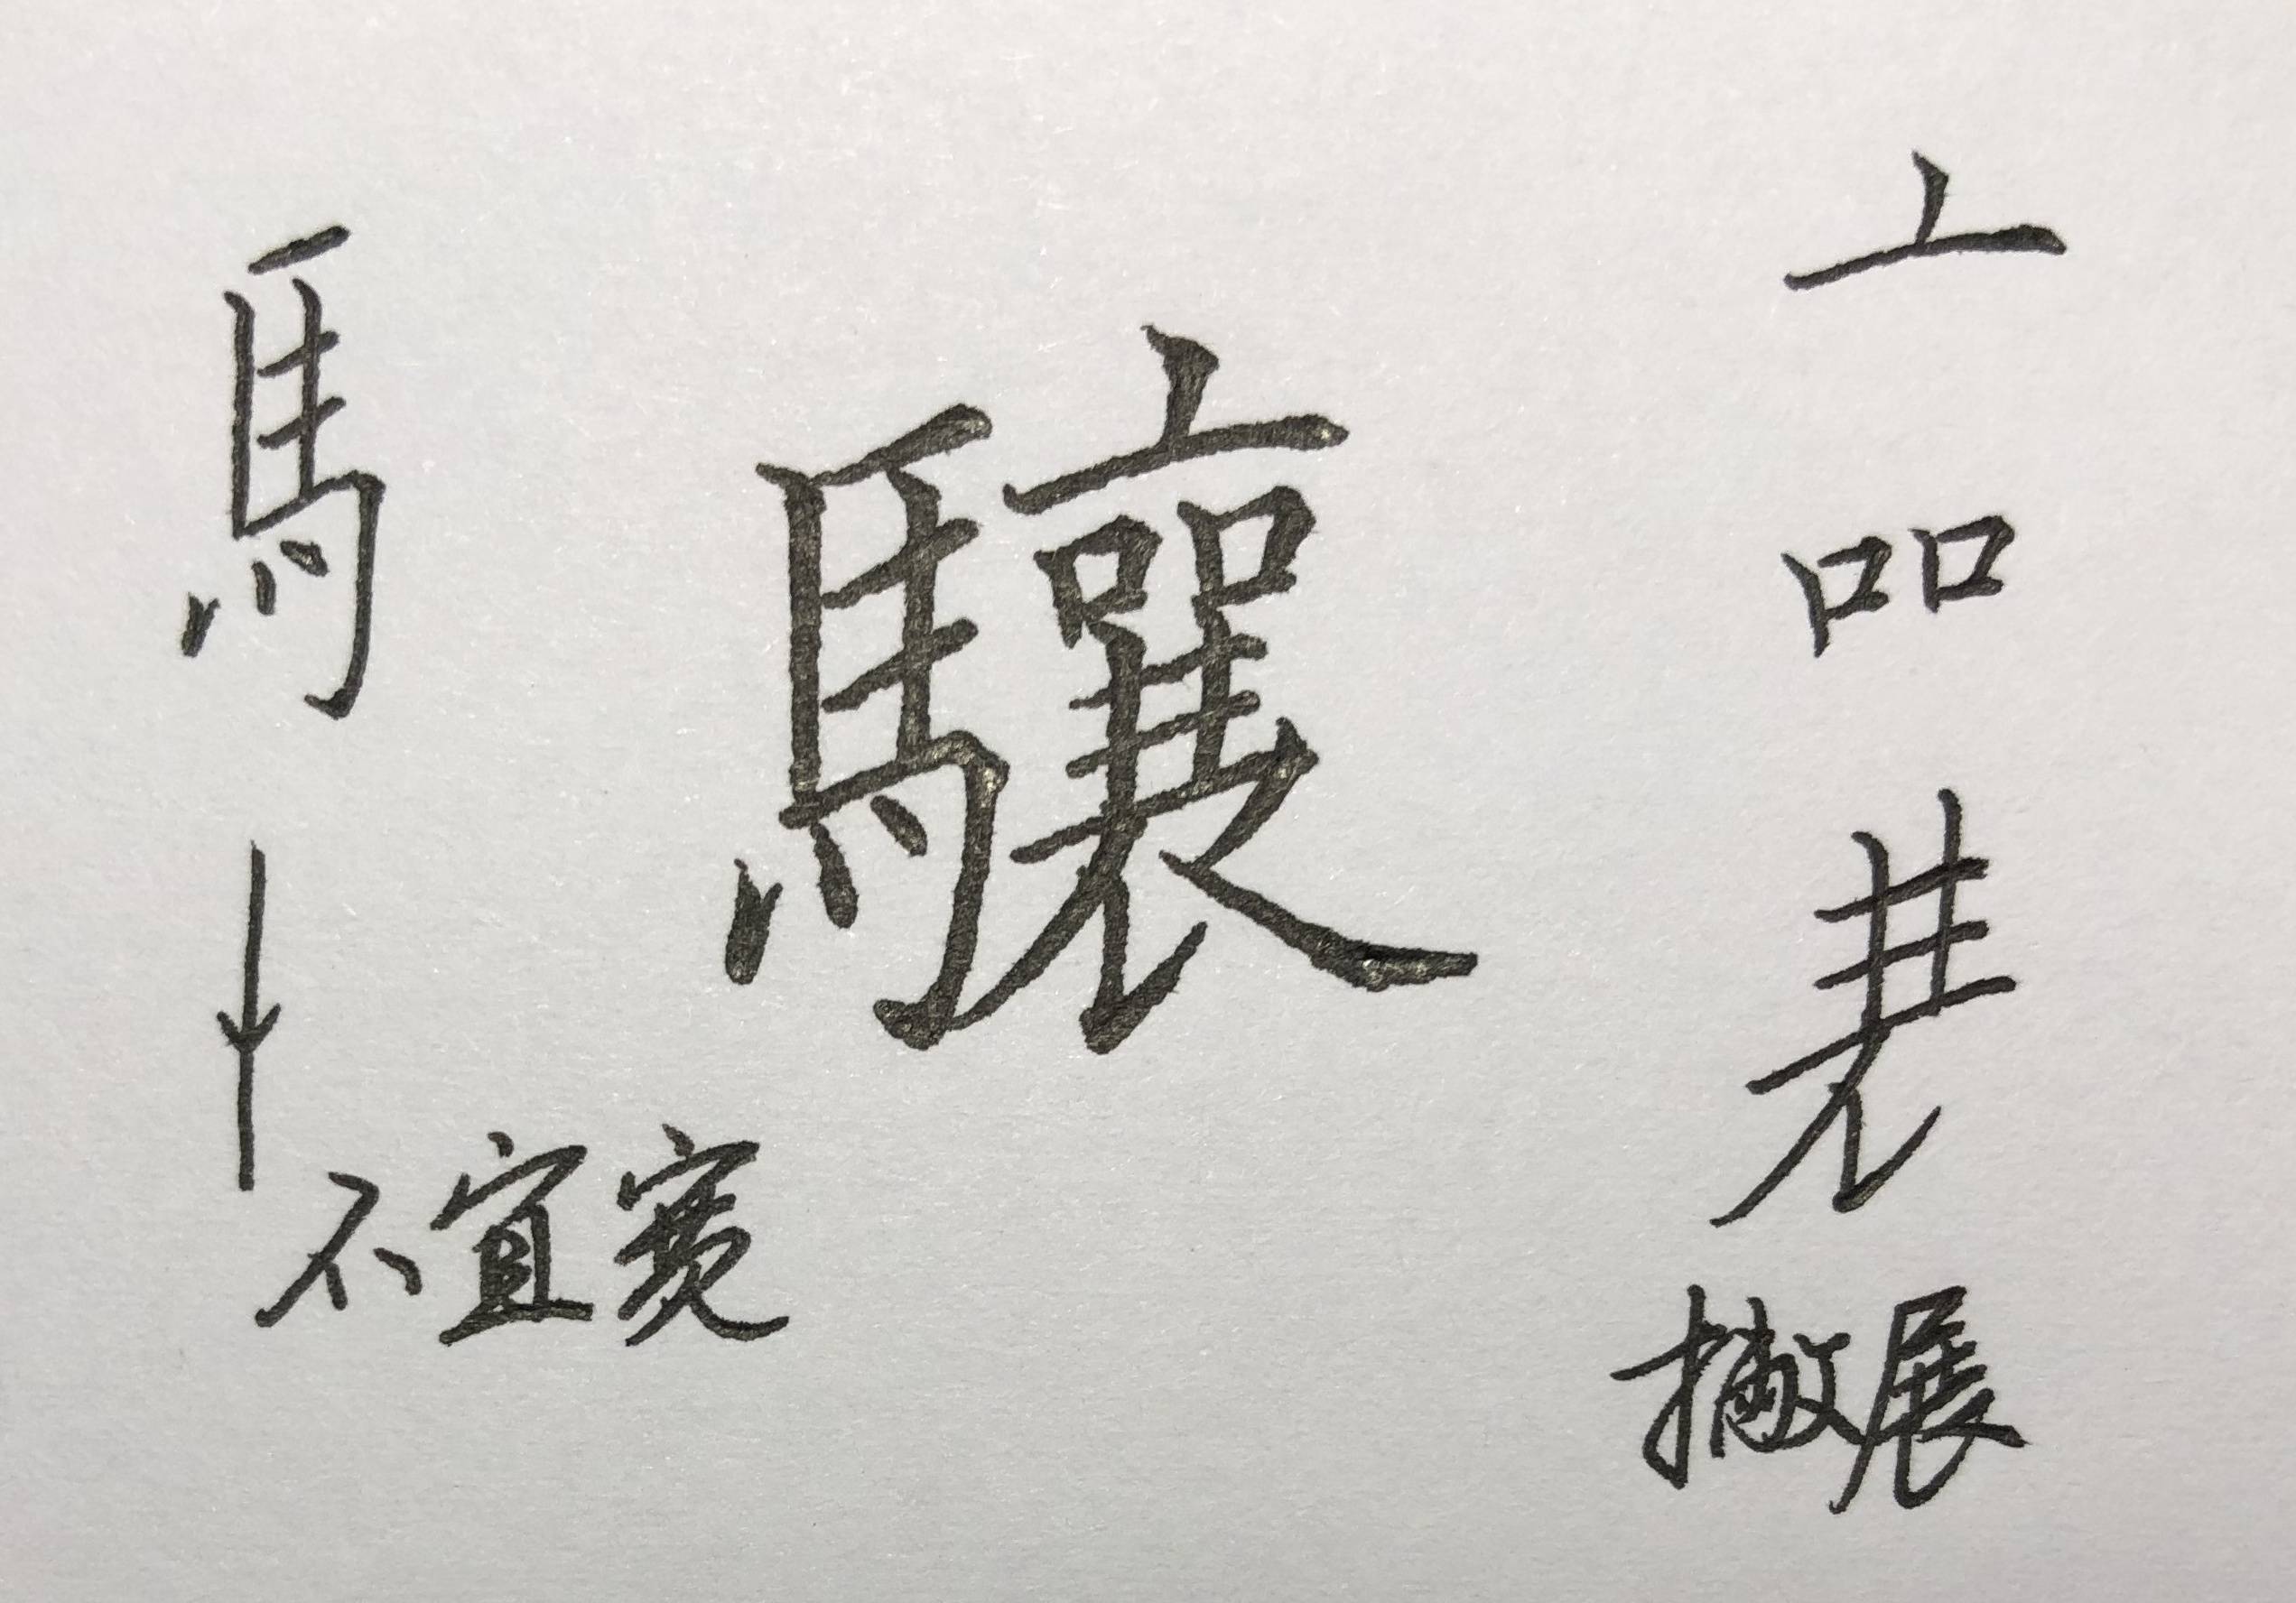 馬
驤
亠
吅
不宜宽
撇展